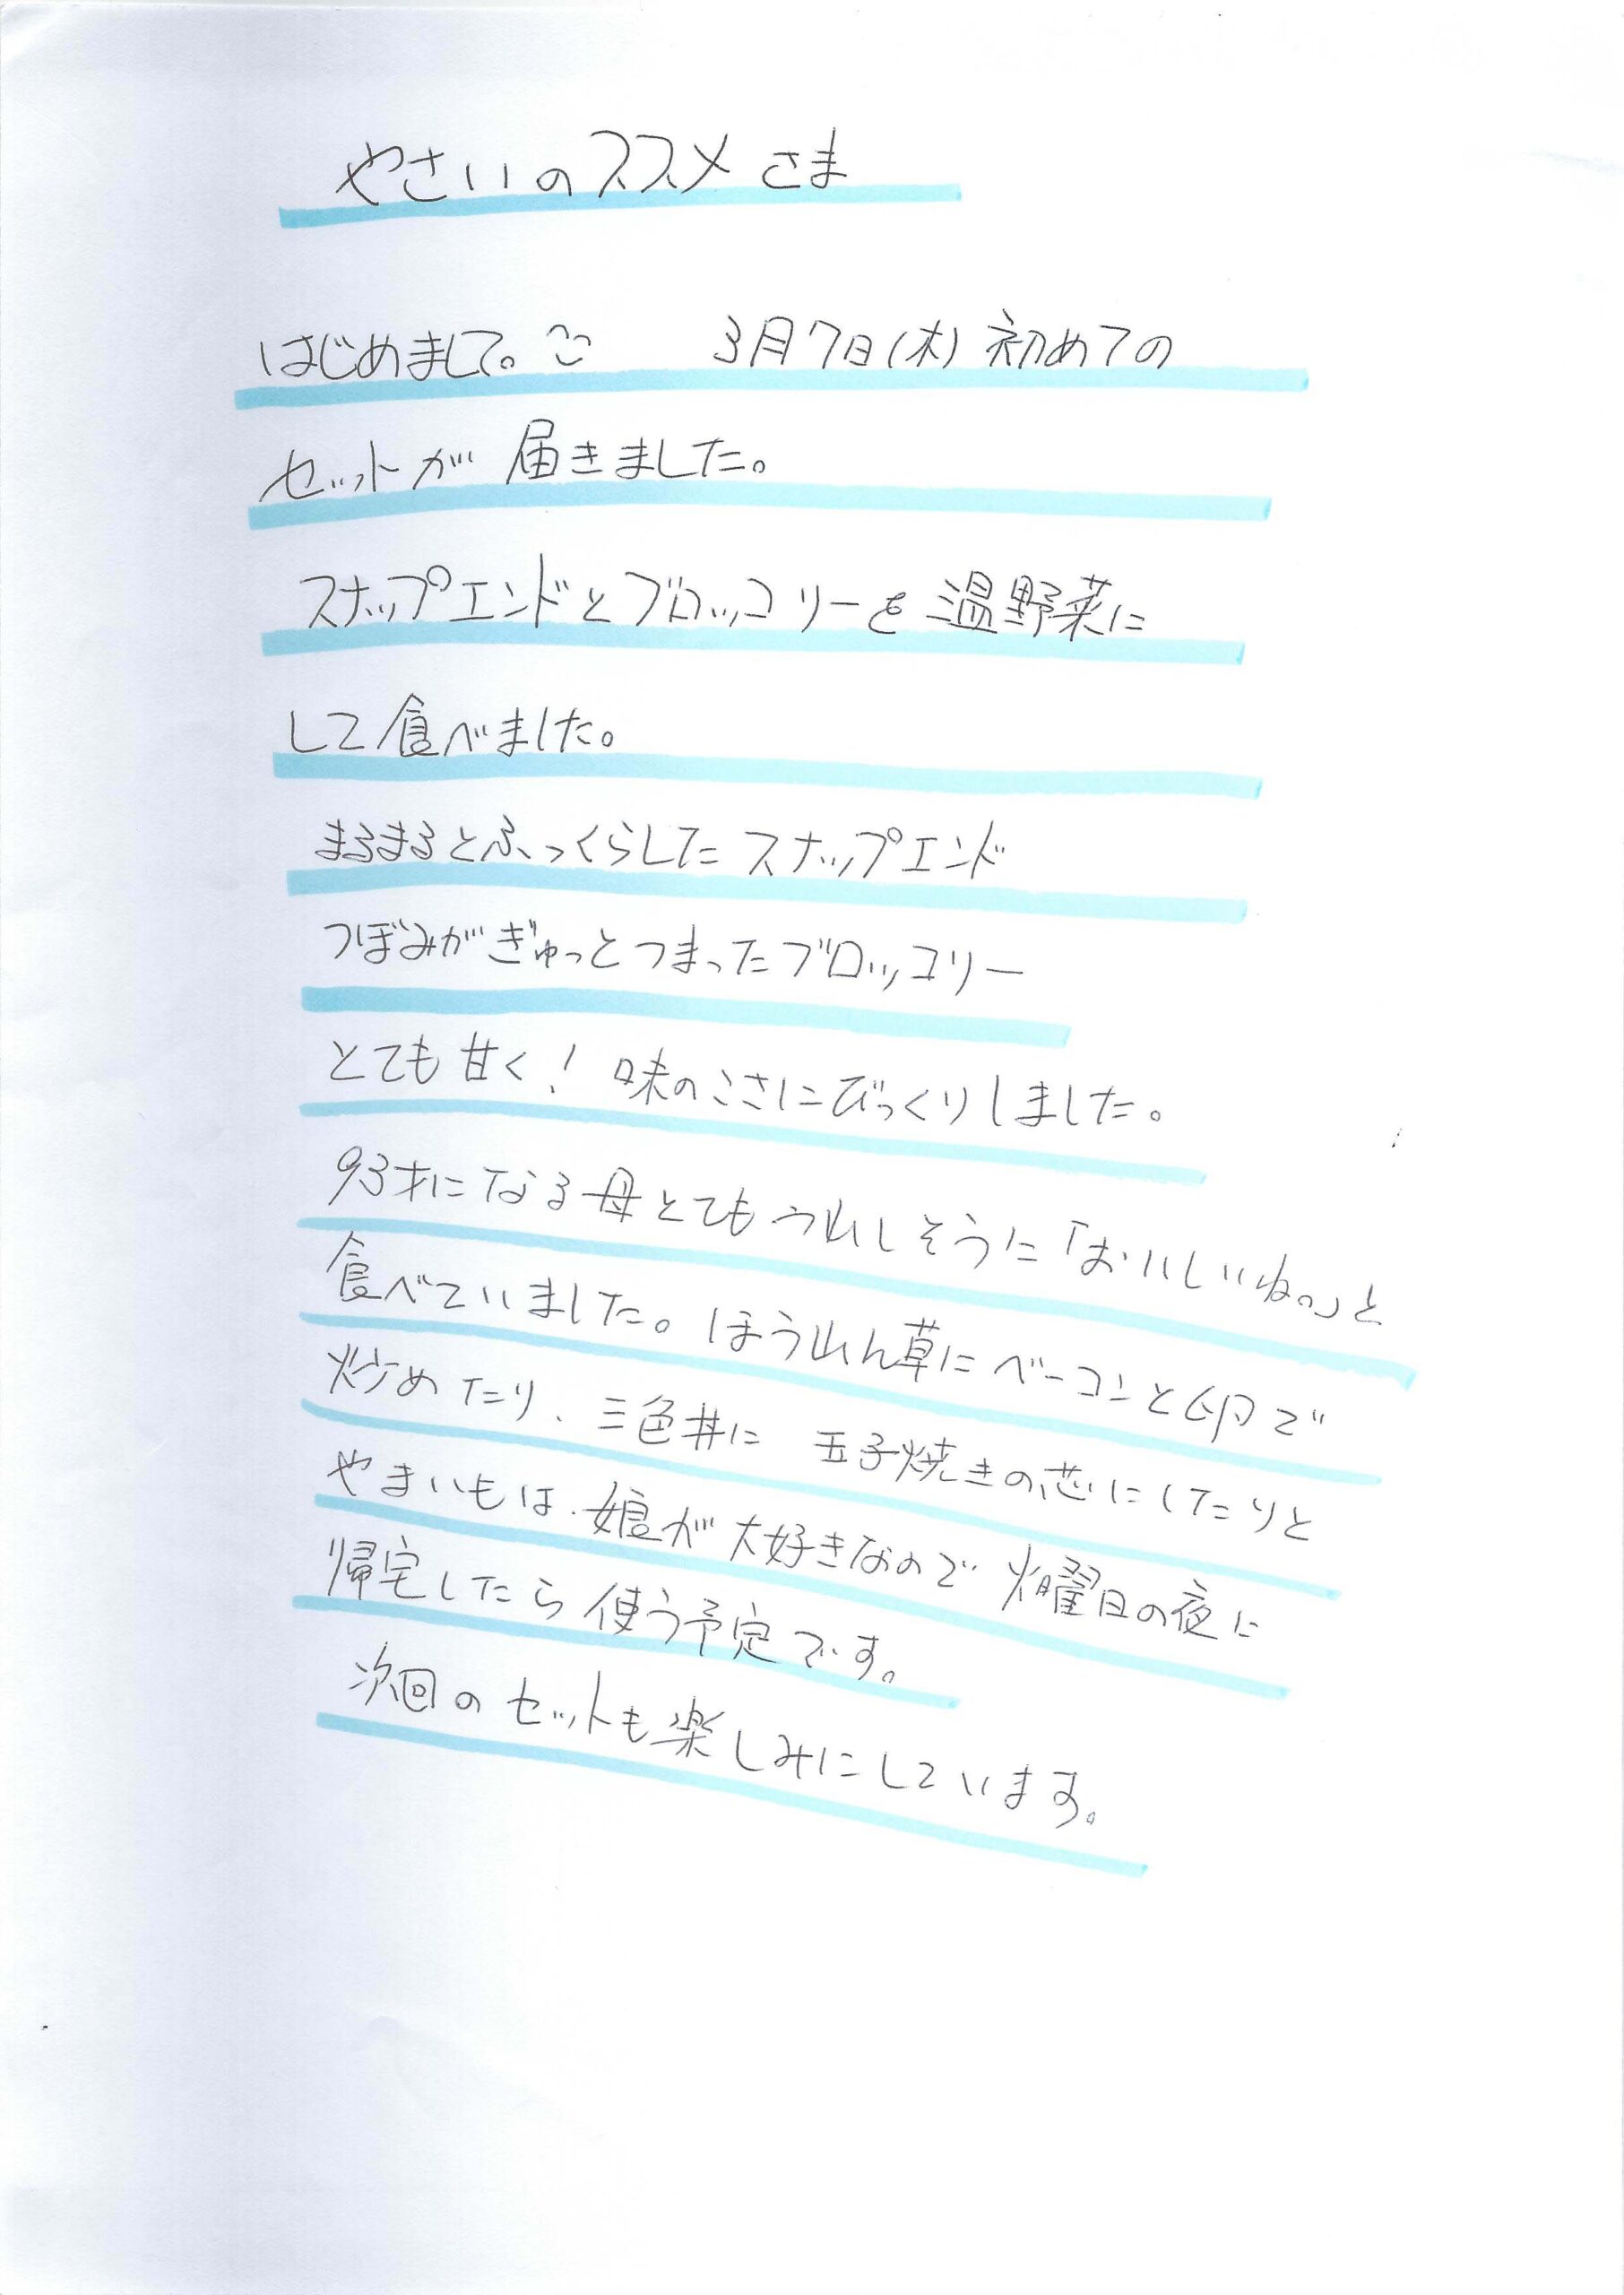 やさいのススメ さま
はじめまして。 3月7日(木) 初めての
セットが 届きました。
スナップエンドとブロッコリーを 温野菜に
して食べました。
まるまるとふっくらした スナップエンド
つぼみがぎゅっとつまったブロッコリー
とても甘く! 味のこさにびっくりしました。
93才になる母とても うれしそうに「おいしいね。」と
食べていました。ほうれん草に ベーコンと卵で
炒めたり、三色丼に 玉子焼きの芯にしたりと
やまいもは、娘が大好きなので 火曜日の夜に
帰宅したら 使う予定です。
次回のセットも楽しみにしています。